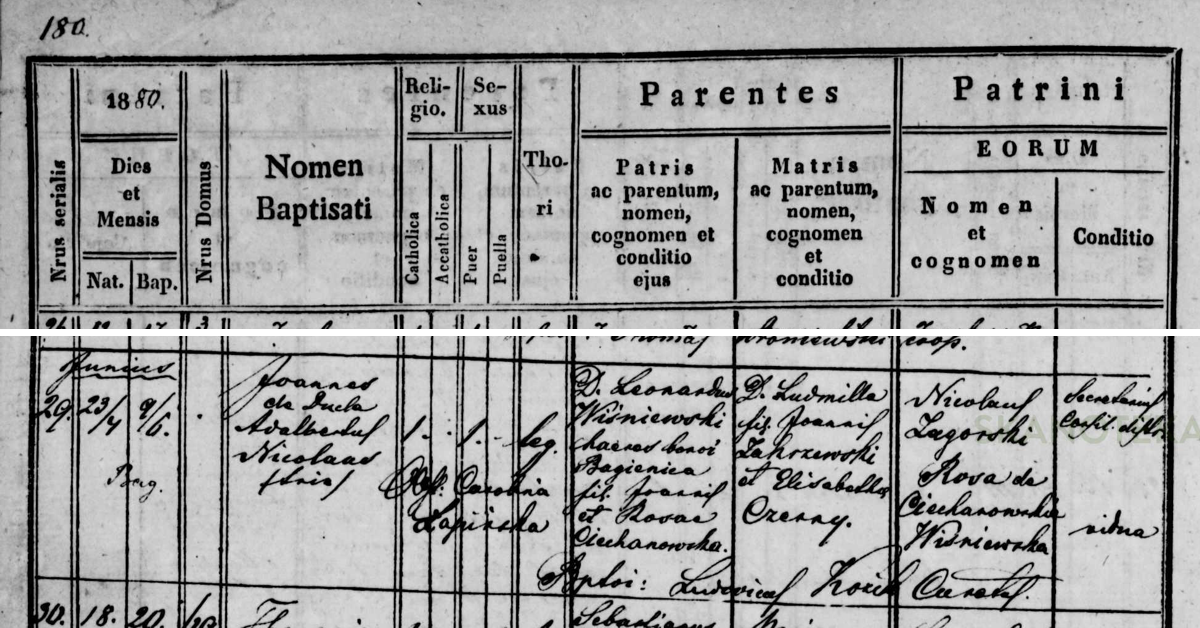 180.
Nrus serialis
1880.
Dies
et
Mensis
Nat. Bap.
Nrus Domus
Nomen
Baptisati
Reli-
gio.
Catholica
Accatholica
Se-
xus
Puer
Puella
Tho-
ri
Parentes
Patris
ac parentum,
nomen,
cognomen et
conditio
ejus
Matris
ac parentum,
nomen,
cognomen
et
conditio
Patrini
EORUM
Nomen
et
cognomen
Conditio
Thomas
coop.
Junius
29. 23/4 9/6.
Bag.
Joannes
de Ducla
Adalbertus
Nicolaus
1. 1. leg.
Obst: Carolina
Łapińska
D. Leonardus
Wiśniewski
haeres bonoi
Bagienica
fil. Joannis
et Rosae
Ciechanowska.
D. Ludmilla
fil. Joannis
Zakrzewski
et Elisabethae
Czerny.
Nicolaus
Zagorski
Secretarius
Consil. distr.
Rosa de
Ciechanowskie
Wiśniewska
vidua
Bptoi: Ludovicus Kozik Curatus.
30. 18. 20.
Sebastianus